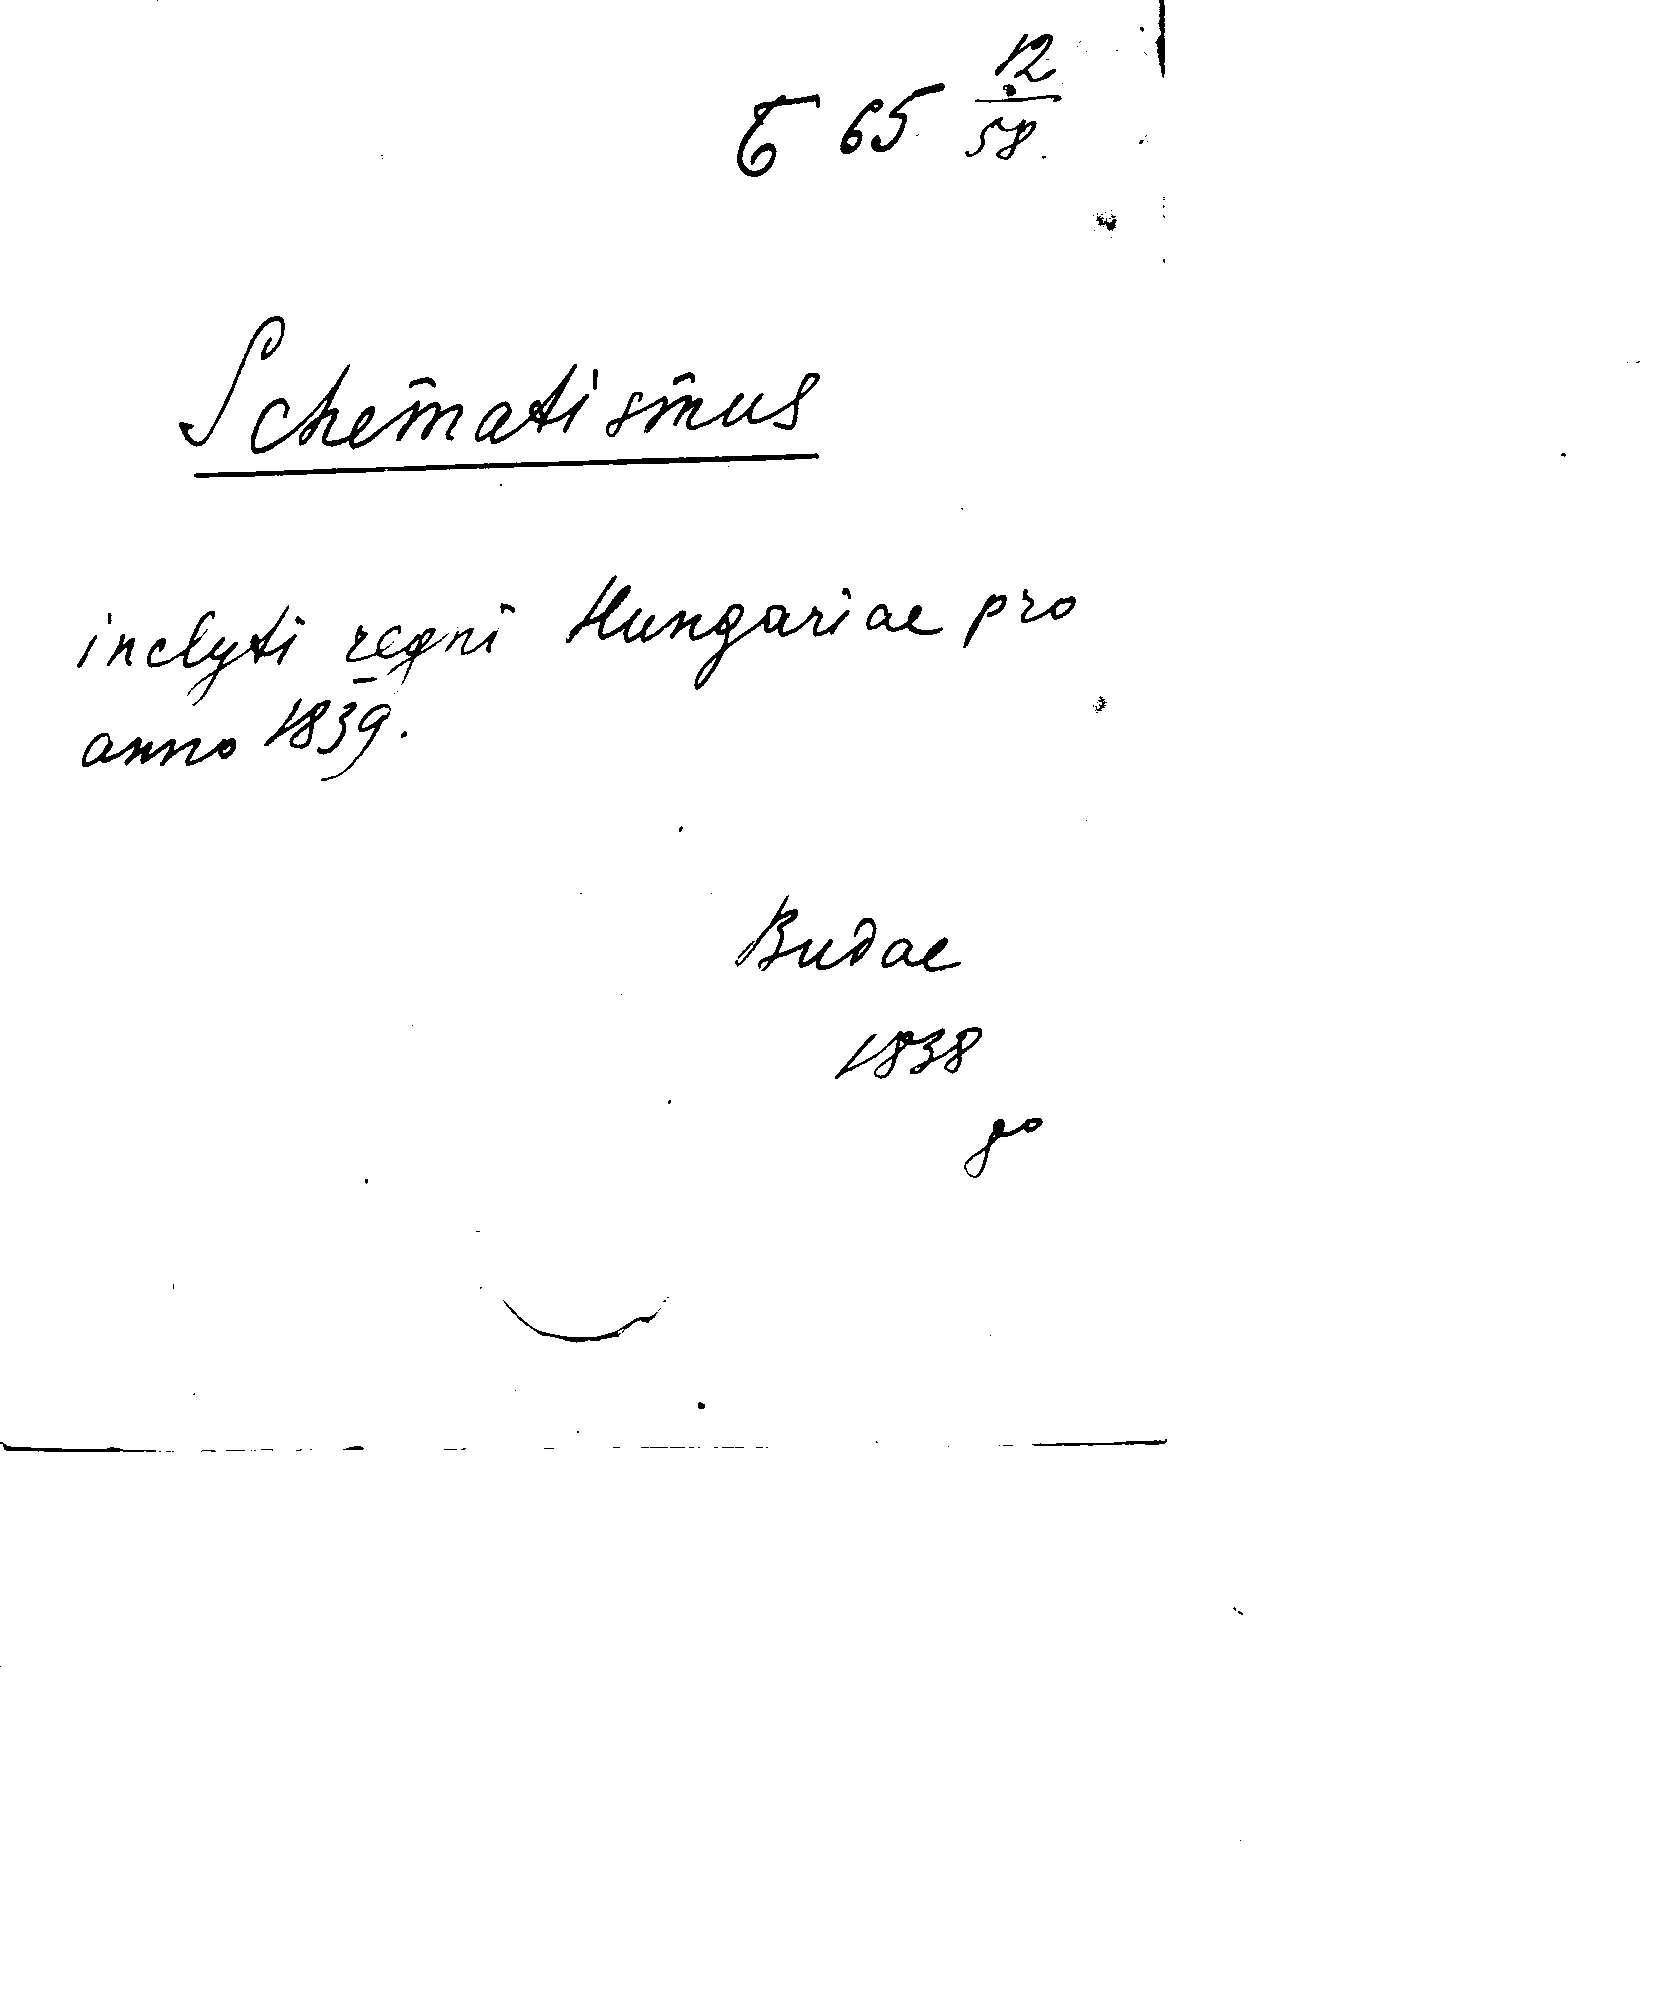 Б 65 12/58.
Schematismus
inclyti regni Hungariae pro
anno 1839.
Budae
1838
до